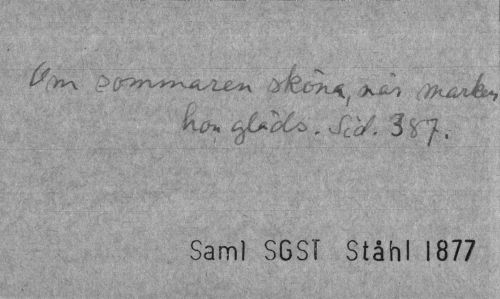 Om sommaren sköna, når marken
hon gläds. Sid. 387.
Saml SGST Ståhl 1877